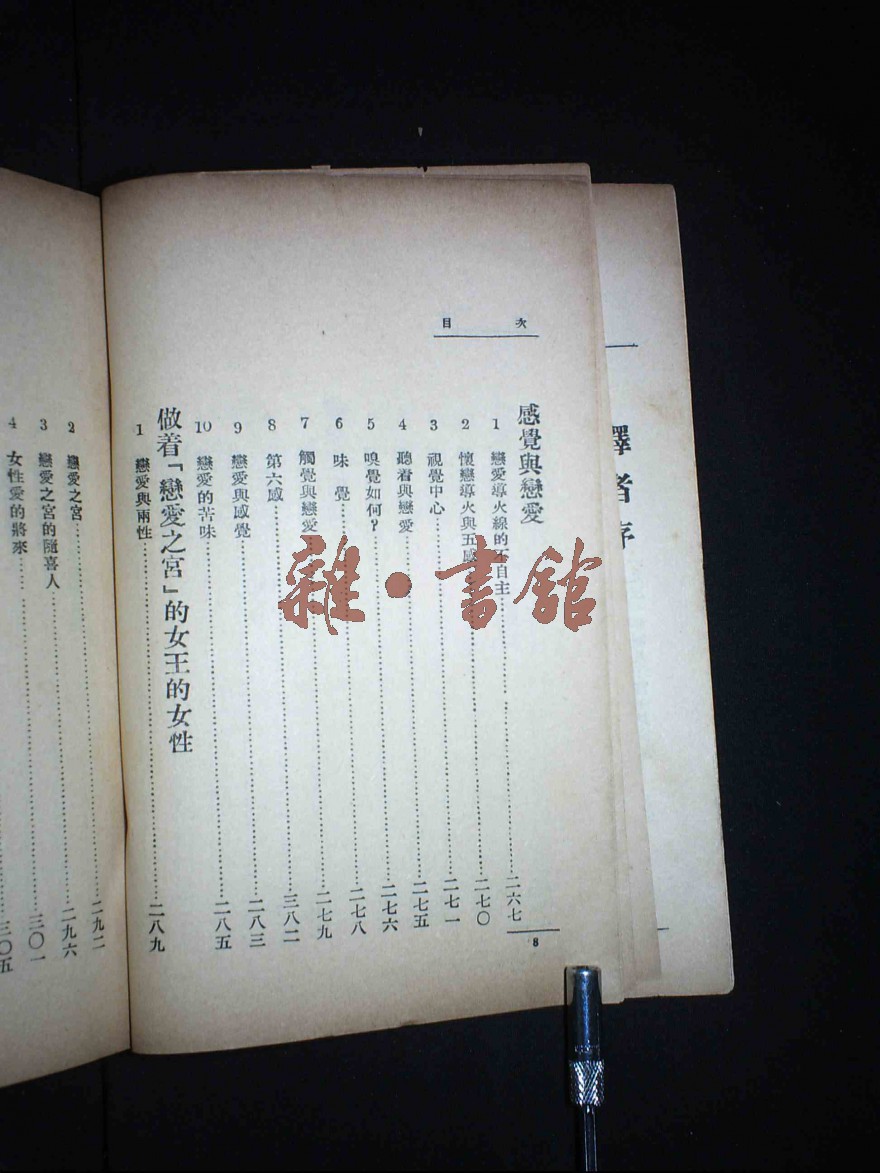 譯者序
目次
感覺與戀愛
1 戀愛導火線的不自主……二六七
2 懷戀導火與五感……二七〇
3 視覺中心……二七一
4 聽着與戀愛……二七五
5 嗅覺如何？……二七六
6 味 覺……二七八
7 觸覺與戀愛……二七九
8 第六感……三八二
9 戀愛與感覺……二八三
10 戀愛的苦味……二八五
做着「戀愛之宮」的女王的女性
1 戀愛與兩性……二八九
8
2 戀愛之宮……二九二
3 戀愛之宮的隨喜人……二九六
4 女性愛的將來……三〇一
……三〇五
雜·書館